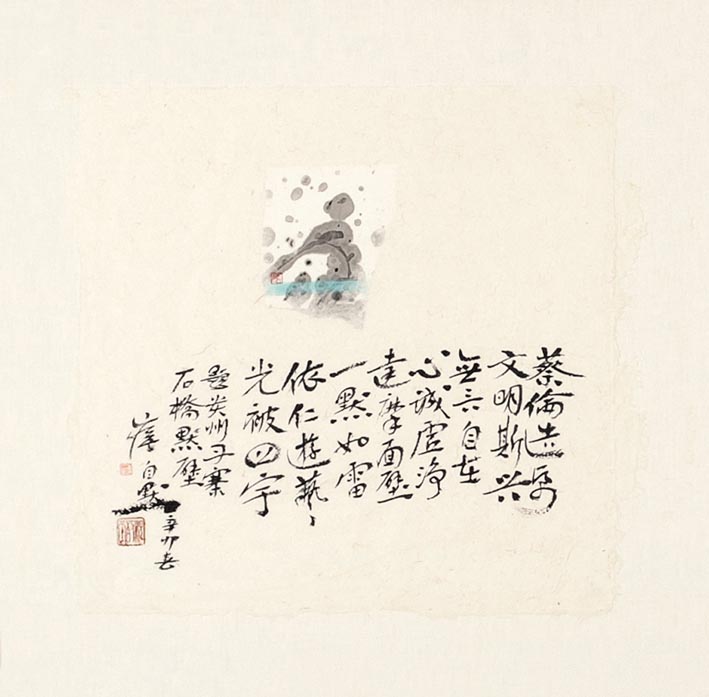 蔡倫去矣
文明斯興
無言自在
心誠虛淨
達摩面壁
一默如雷
依仁遊藝
光被四宇
題貴州丹寨
石橋默壁
崔自默
辛卯春